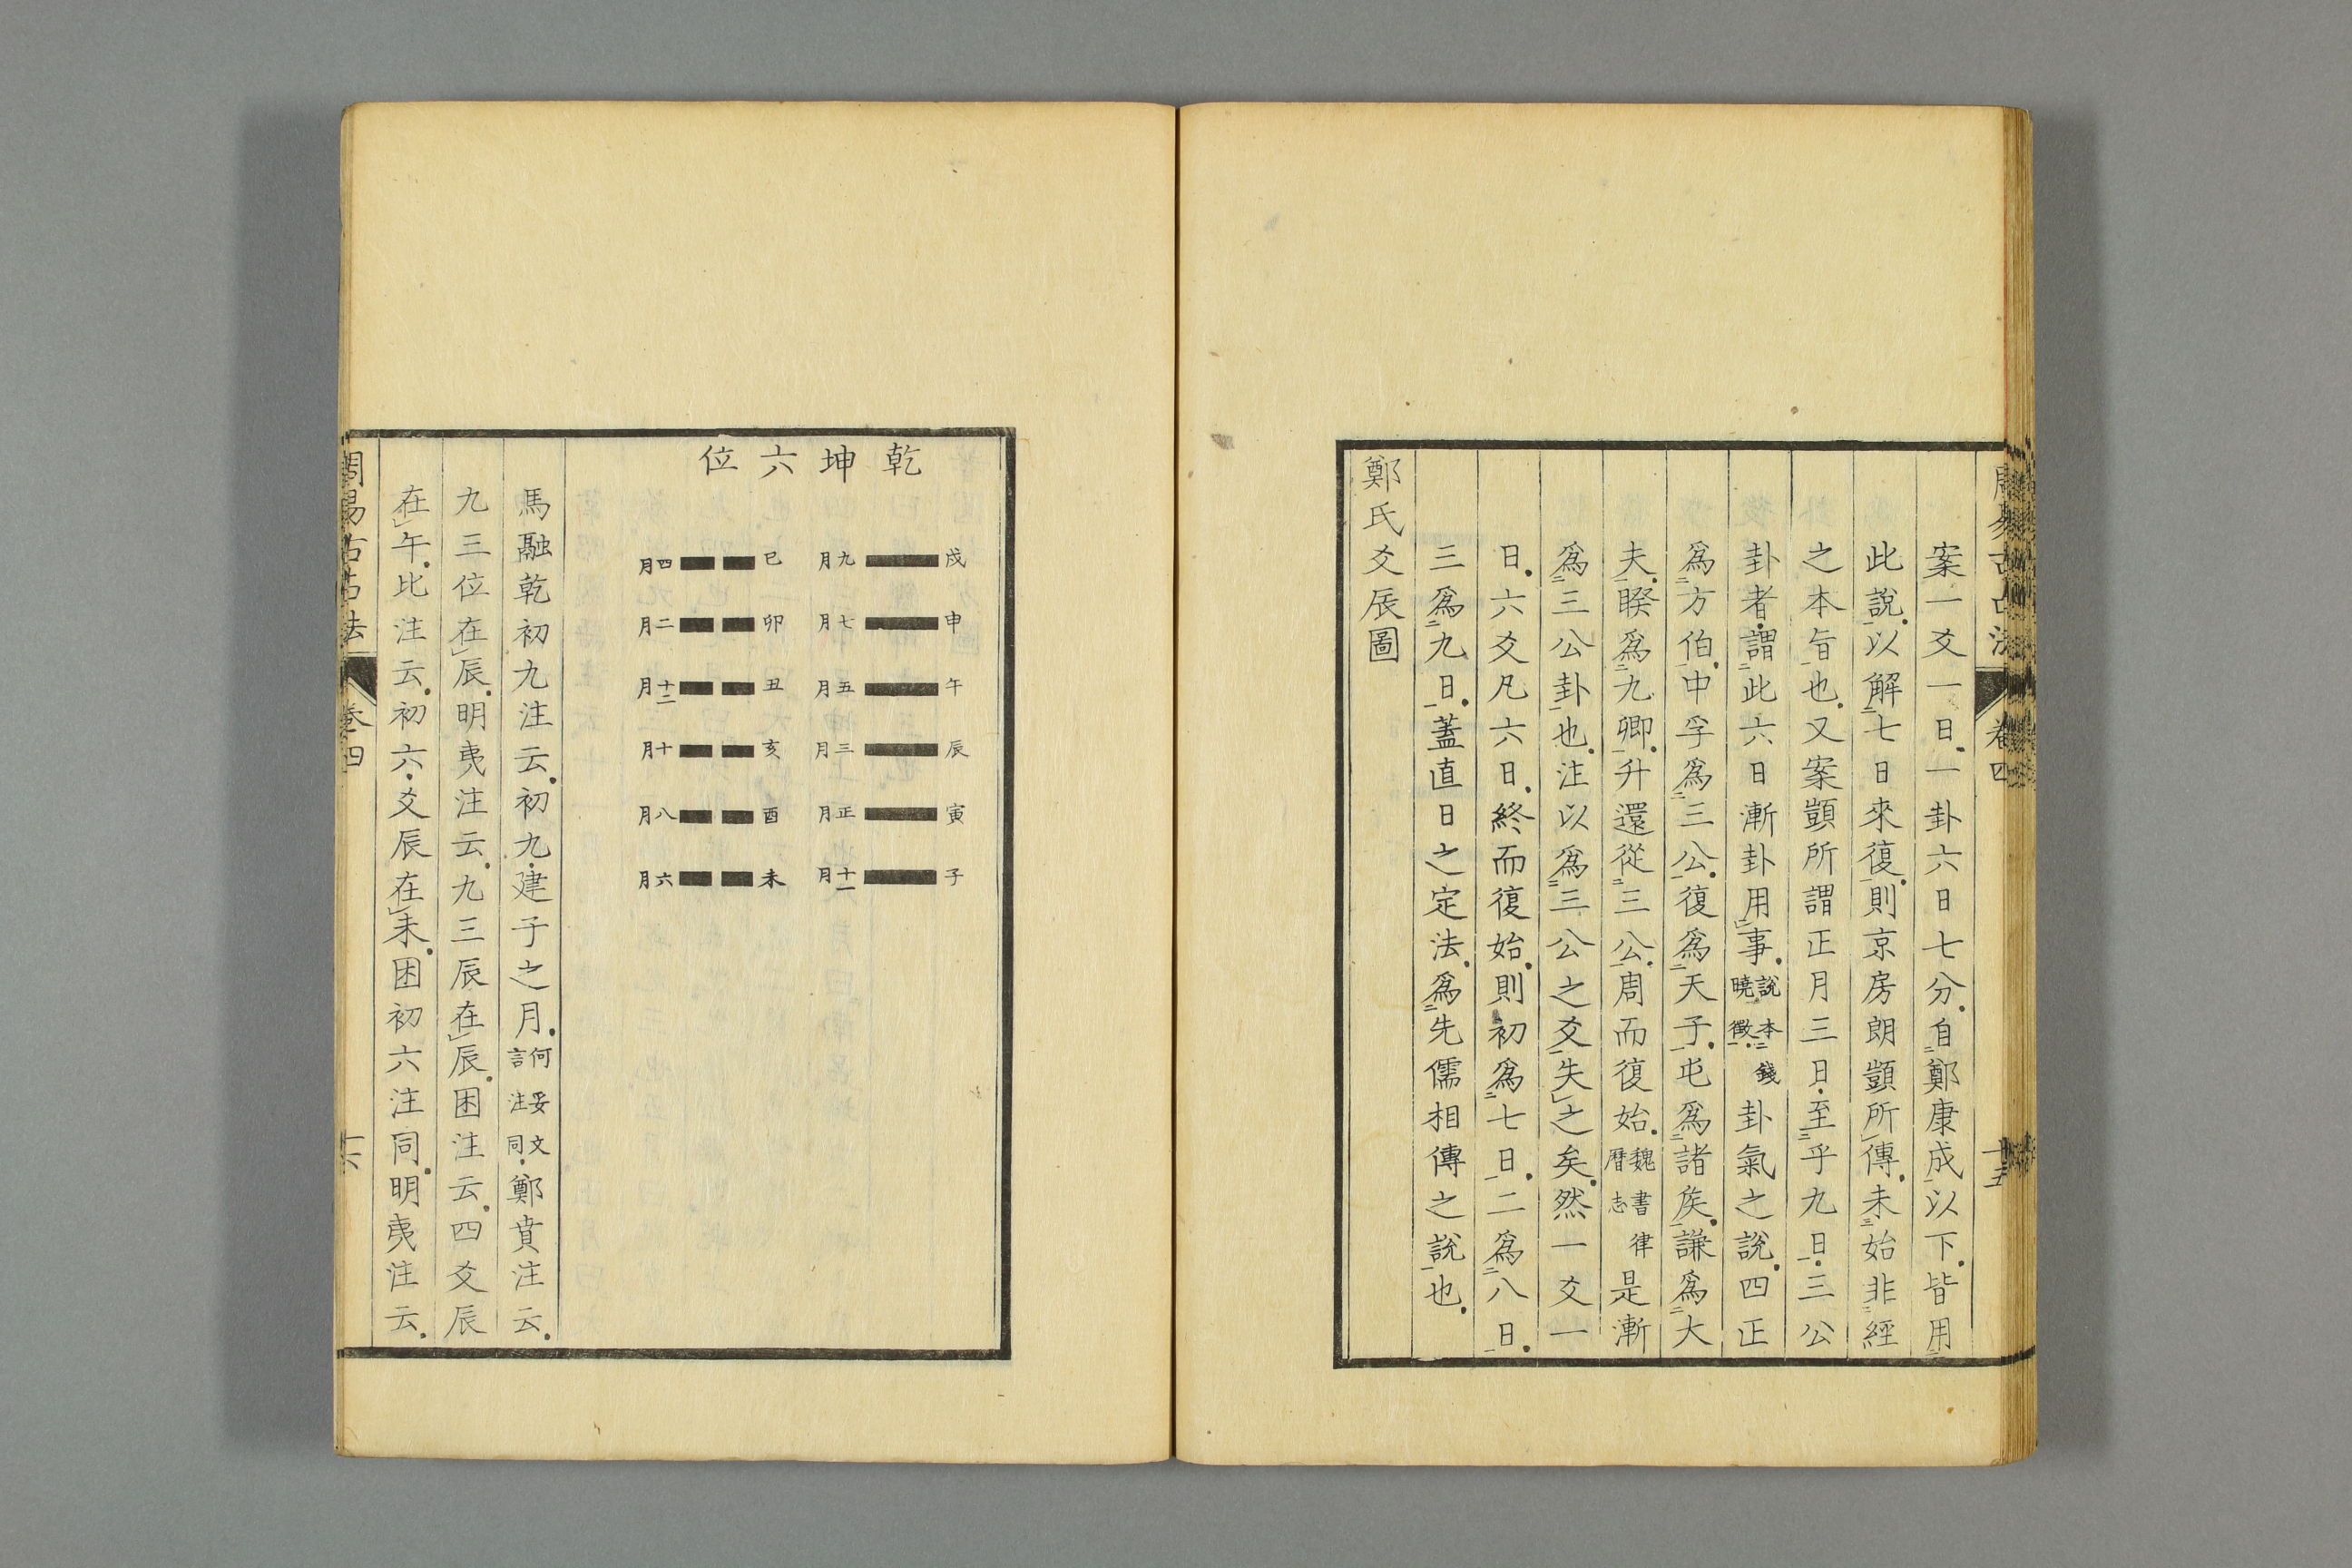 周易古占法 卷四 十五
案一爻一日一卦六日七分自鄭康成以下皆用
此說以解七日來復則京房朗顗所傳未始非經
之本旨也又案顗所謂正月三日至乎九日三公
卦者謂此六日漸卦用事說本錢曉徵卦氣之說四正
爲方伯中孚爲三公復爲天子屯爲諸矦謙爲大
夫睽爲九卿升還從三公周而復始魏書律曆志是漸
爲三公卦也注以爲三公之爻失之矣然一爻一
日六爻凡六日終而復始則初爲七日二爲八日
三爲九日蓋直日之定法爲先儒相傳之說也
鄭氏爻辰圖
乾坤六位
戌 九月
申 七月
午 五月
辰 三月
寅 正月
子 十一月
巳 四月
卯 二月
丑 十二月
亥 十月
酉 八月
未 六月
馬融乾初九注云初九建子之月何妥文言注同鄭賁注云
九三位在辰明夷注云九三辰在辰困注云四爻辰
在午比注云初六爻辰在未困初六注同明夷注云
周易古占法 卷四 十六